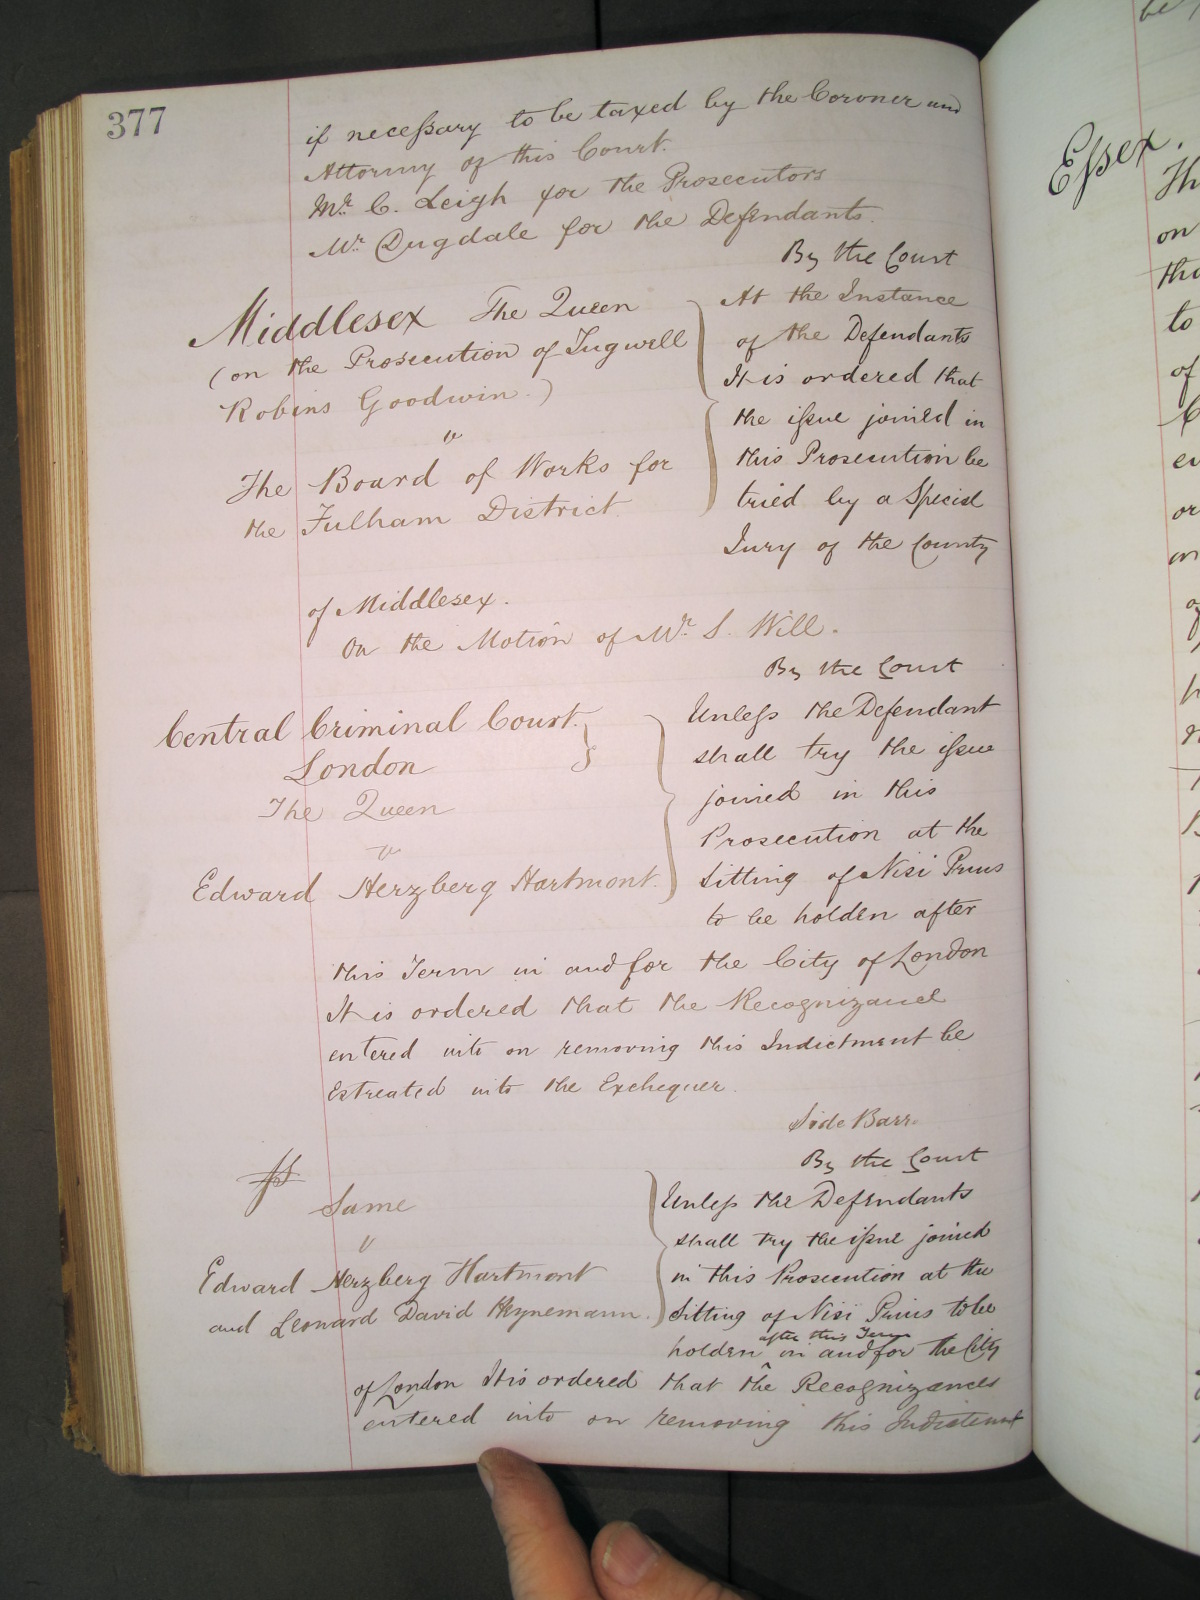 377
if necessary to be taxed by the Coroner and
Attorney of this Court.
Mr. C. Leigh for the Prosecutors
Mr. Dugdale for the Defendants.
By the Court
Middlesex The Queen
(on the Prosecution of Tugwell
Robins Goodwin.)
v
The Board of Works for
the Fulham District.
At the Instance
of the Defendants
It is ordered that
the issue joined in
this Prosecution be
tried by a Special
Jury of the County
of Middlesex.
On the Motion of Mr. S. Will.
By the Court
Central Criminal Court.
London
The Queen
v
Edward Herzberg Hartmont.
Unless the Defendant
shall try the issue
joined in this
Prosecution at the
Sitting of Nisi Prius
to be holden after
this Term in and for the City of London
It is ordered that the Recognizance
entered into on removing this Indictment be
Estreated into the Exchequer.
Side Barr.
By the Court
Same
v
Edward Herzberg Hartmont
and Leonard David Heynemann.
Unless the Defendants
shall try the issue joined
in this Prosecution at the
Sitting of Nisi Prius to be
after this Term
holden in and for the City
of London It is ordered that the Recognizances
entered into on removing this Indictment
Essex.
Th
on
the
to
of